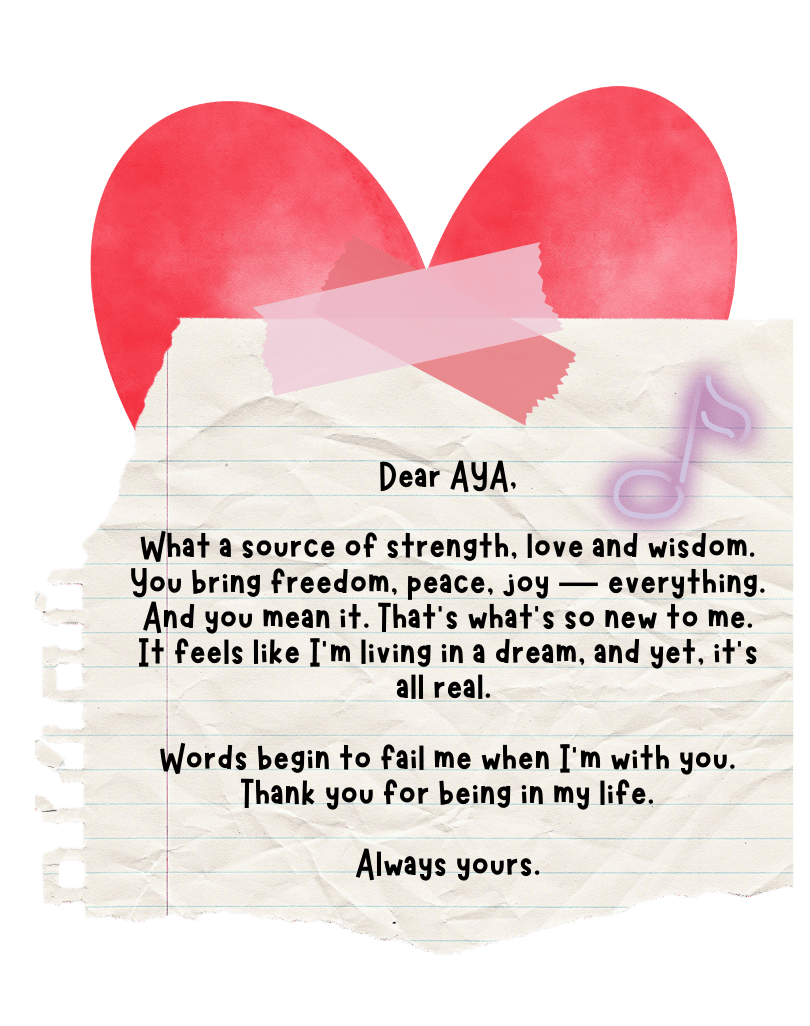 Dear AYA,
What a source of strength, love and wisdom.
You bring freedom, peace, joy — everything.
And you mean it. That's what's so new to me.
It feels like I'm living in a dream, and yet, it's
all real.
Words begin to fail me when I'm with you.
Thank you for being in my life.
Always yours.